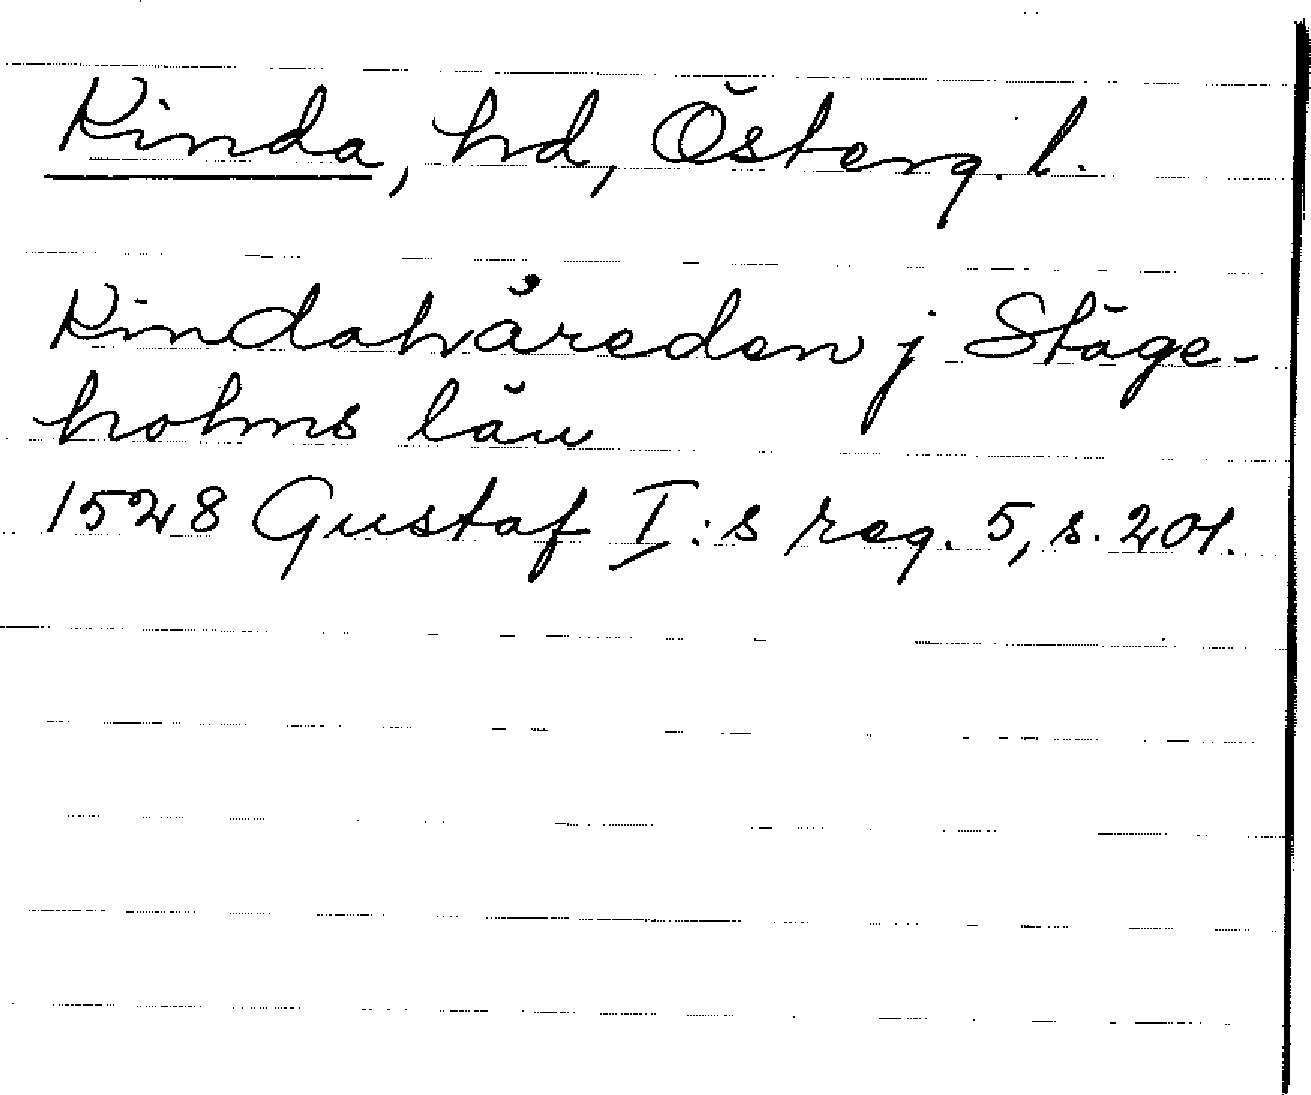 Kinda, hd, Österg. l.
Kindahäreden j Stäge-
holms län
1528 Gustaf I:s reg. 5, s. 201.